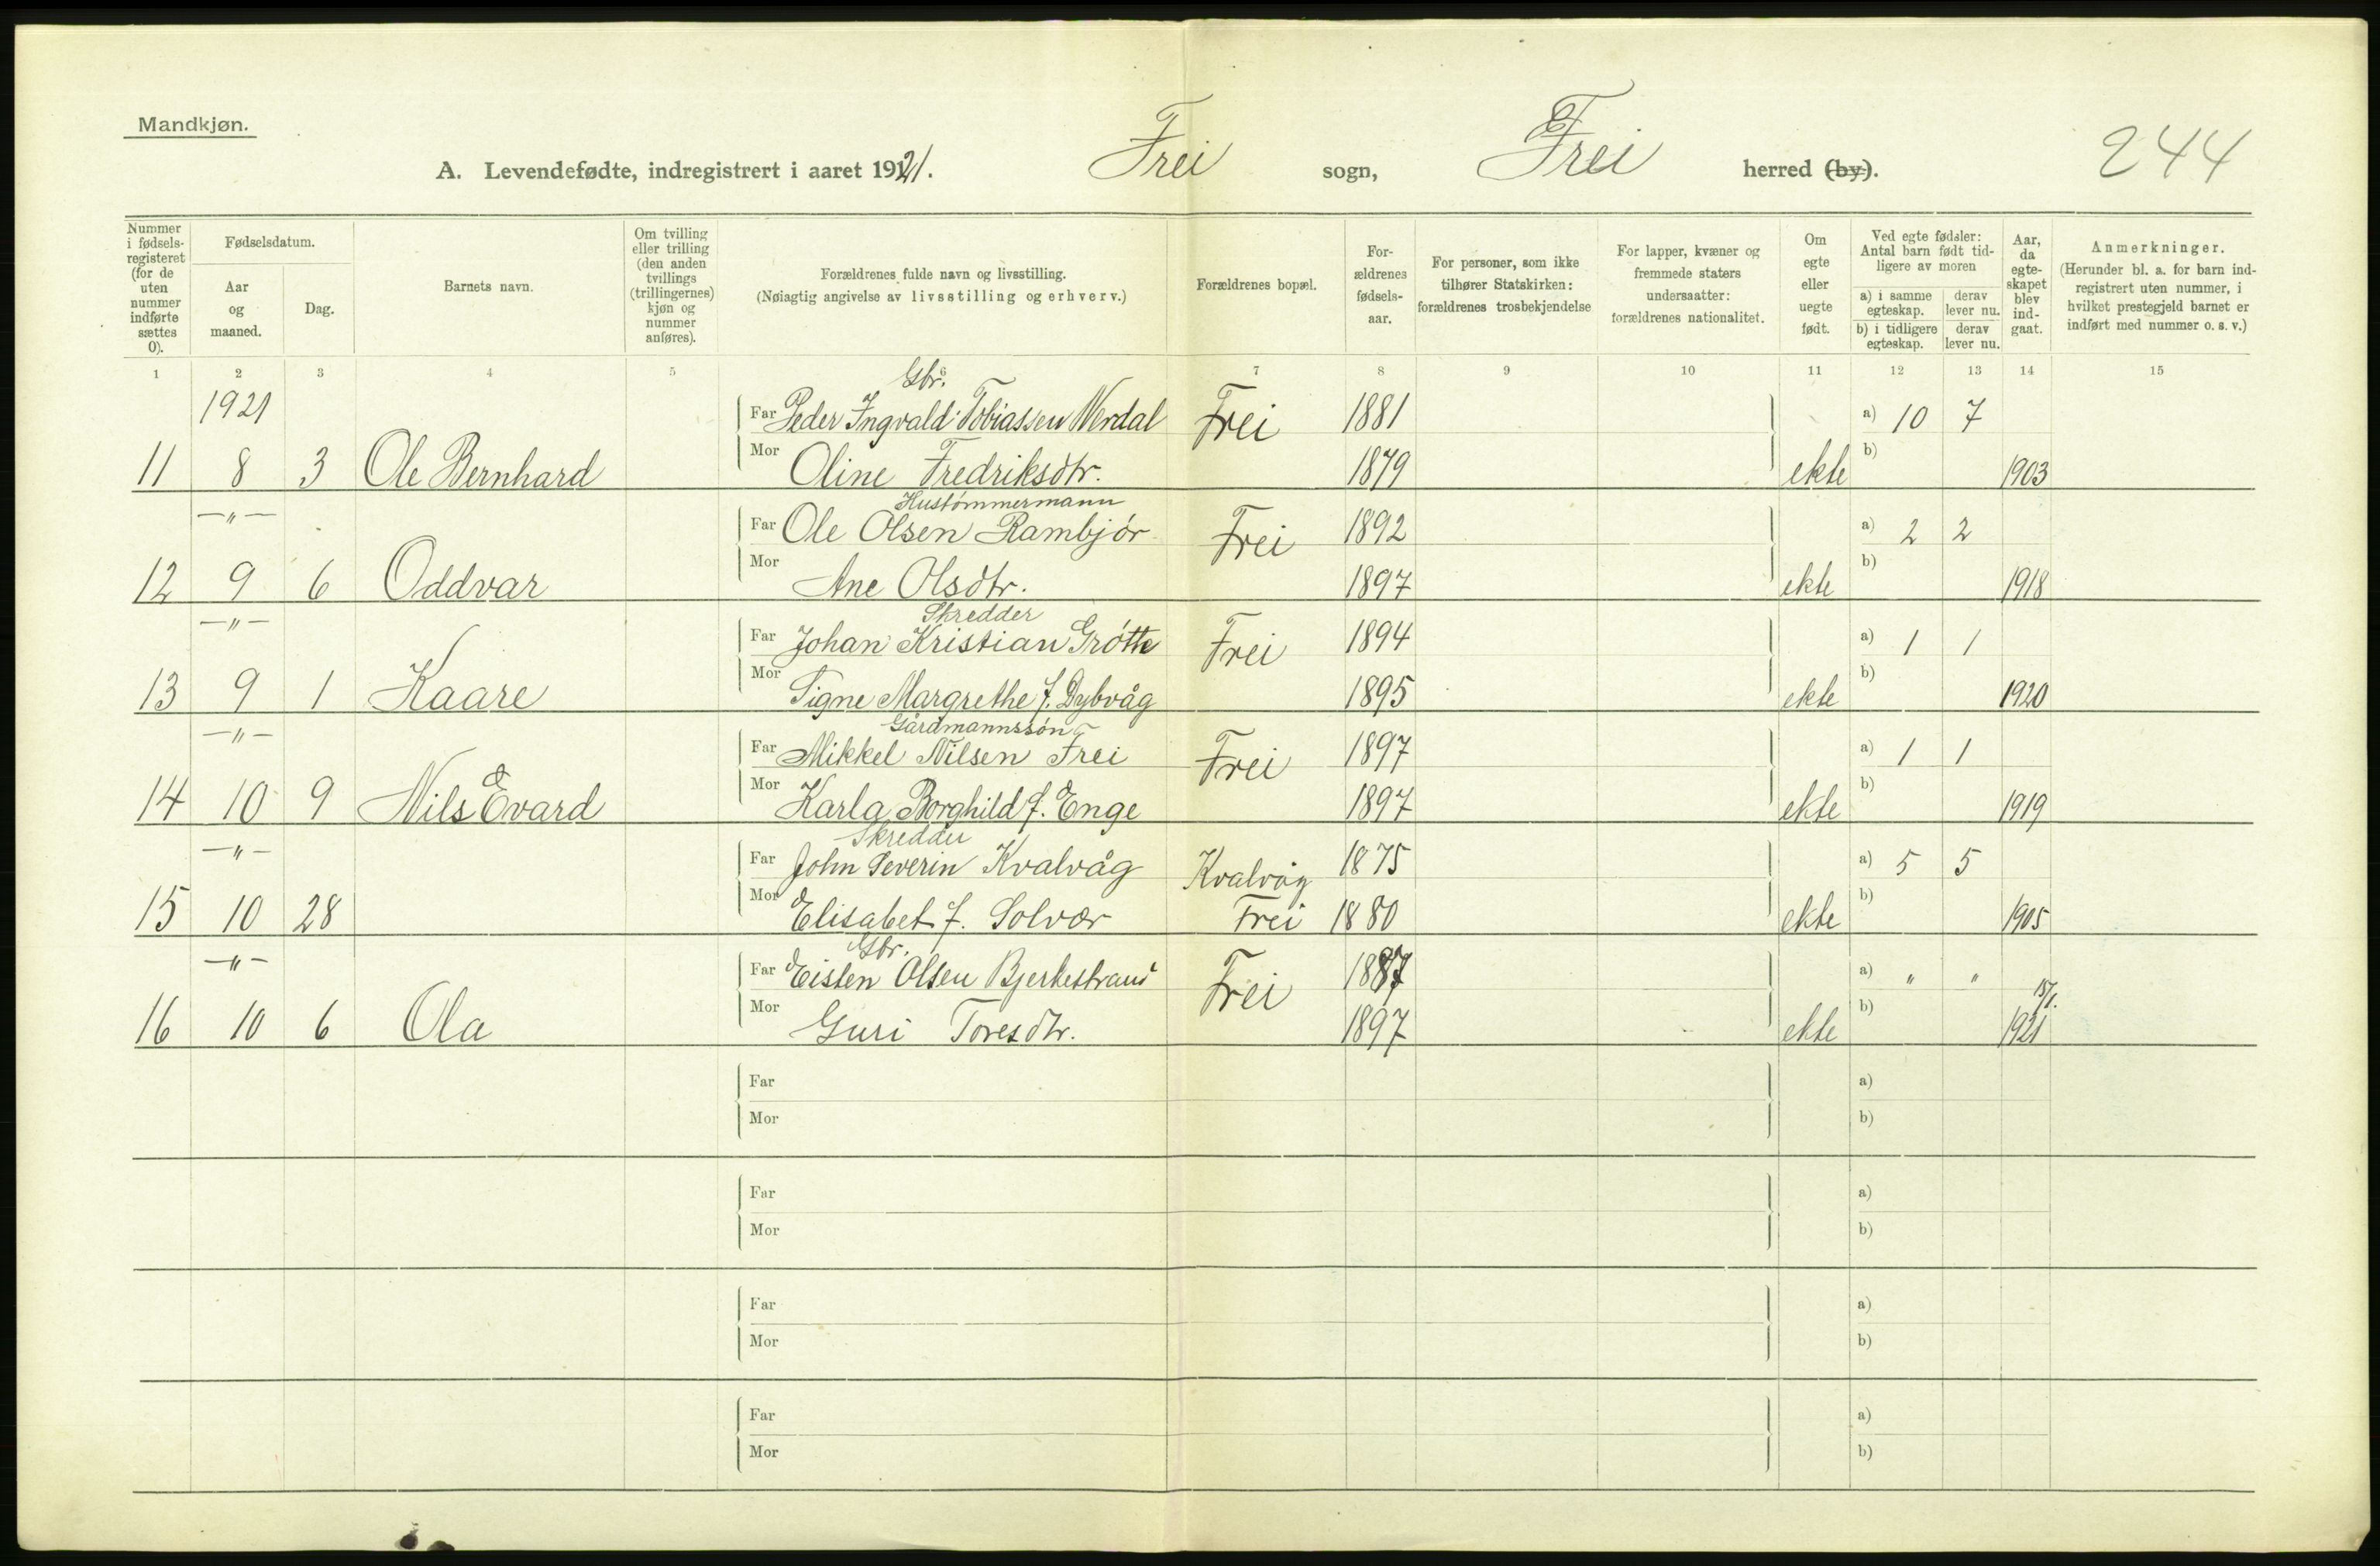 Mandkjøn.
A. Levendefødte, indregistrert i aaret 1921. Frei sogn, Frei herred (by).
244
Nummer i fødsels-registeret (for de uten nummer indførte sættes 0).
Fødselsdatum.
Aar og maaned.
Dag.
Barnets navn.
Om tvilling eller trilling (den anden tvillings (trillingernes) kjøn og nummer anføres).
Forældrenes fulde navn og livsstilling.
(Nøiagtig angivelse av livsstilling og erhverv.)
Forældrenes bopæl.
For-ældrenes fødsels-aar.
For personer, som ikke tilhører Statskirken: forældrenes trosbekjendelse
For lapper, kvæner og fremmede staters undersaatter: forældrenes nationalitet.
Om egte eller uegte født.
Ved egte fødsler: Antal barn født tid-ligere av moren
a) i samme egteskap.
derav lever nu.
b) i tidligere egteskap.
derav lever nu.
Aar, da egte-skapet blev ind-gaat.
Anmerkninger.
(Herunder bl. a. for barn ind-registrert uten nummer, i hvilket prestegjeld barnet er indført med nummer o. s. v.)
1 2 3 4 5 6 7 8 9 10 11 12 13 14 15
1921 Gbr.
Far Peder Ingvald Tobiassen Werdal Frei 1881 a) 10 7
11 8 3 Ole Bernhard Mor Oline Fredriksdtr. 1879 ekte b) 1903
—"— Hustömmermann
Far Ole Olsen Rambjör Frei 1892 a) 2 2
12 9 6 Oddvar Mor Ane Olsdtr. 1897 ekte b) 1918
—"— Skredder
Far Johan Kristian Grötte Frei 1894 a) 1 1
13 9 1 Kaare Mor Signe Margrethe f. Dybvåg 1895 ekte b) 1920
—"— Gårdmannssön
Far Mikkel Nilsen Frei Frei 1897 a) 1 1
14 10 9 Nils Evard Mor Karla Borghild f. Enge 1897 ekte b) 1919
—"— Skredder
Far John Severin Kvalvåg Kvalvåg 1875 a) 5 5
15 10 28 Mor Elisabet f. Solvær Frei 1880 ekte b) 1905
—"— Gbr.
Far Eisten Olsen Bjerkestrand Frei 1887 a) " "
16 10 6 Ola Mor Guri Toresdtr. 1897 ekte b) 15/1. 1921
Far a)
Mor b)
Far a)
Mor b)
Far a)
Mor b)
Far a)
Mor b)